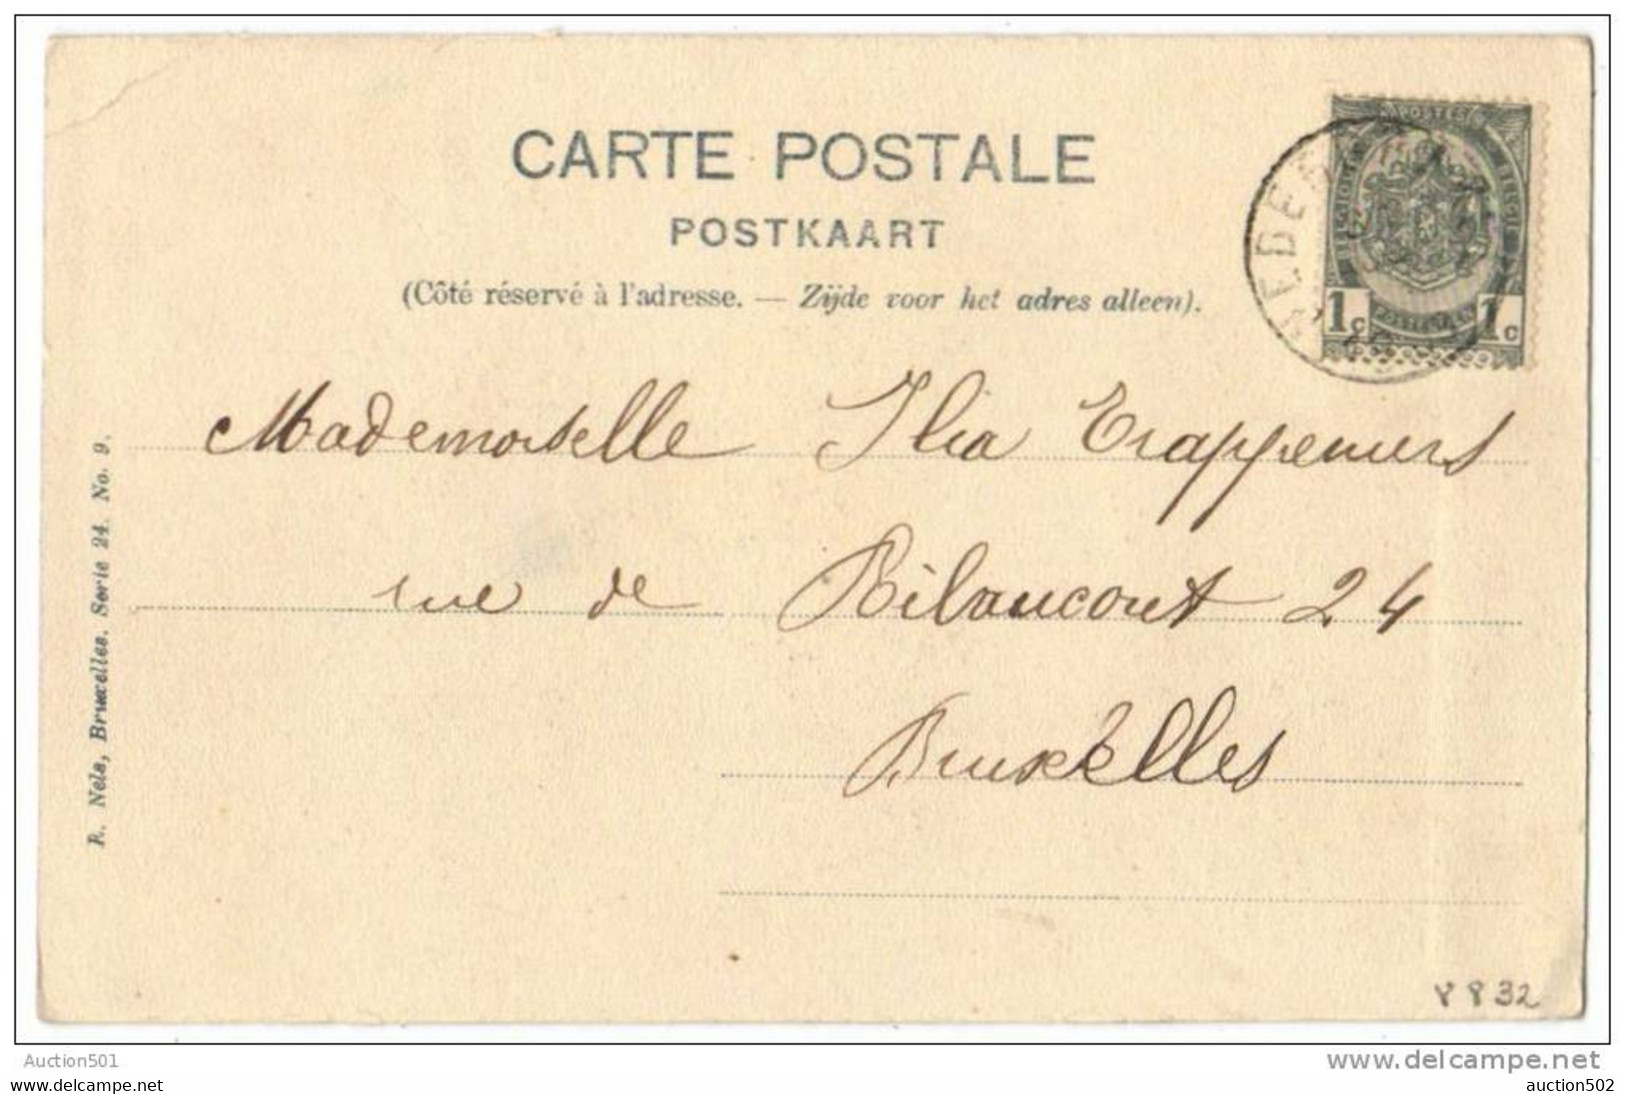 CARTE POSTALE
POSTKAART
(Côté réservé à l'adresse. — Zijde voor het adres alleen).
POSTES
1c 1c
Mademoiselle Ilia Trappeniers
rue de Bilaucourt 24
Bruxelles
R. Nels, Bruxelles. Serie 24. No. 9.
32
Auction501
www.delcampe.net
www.delcampe.net
auction502